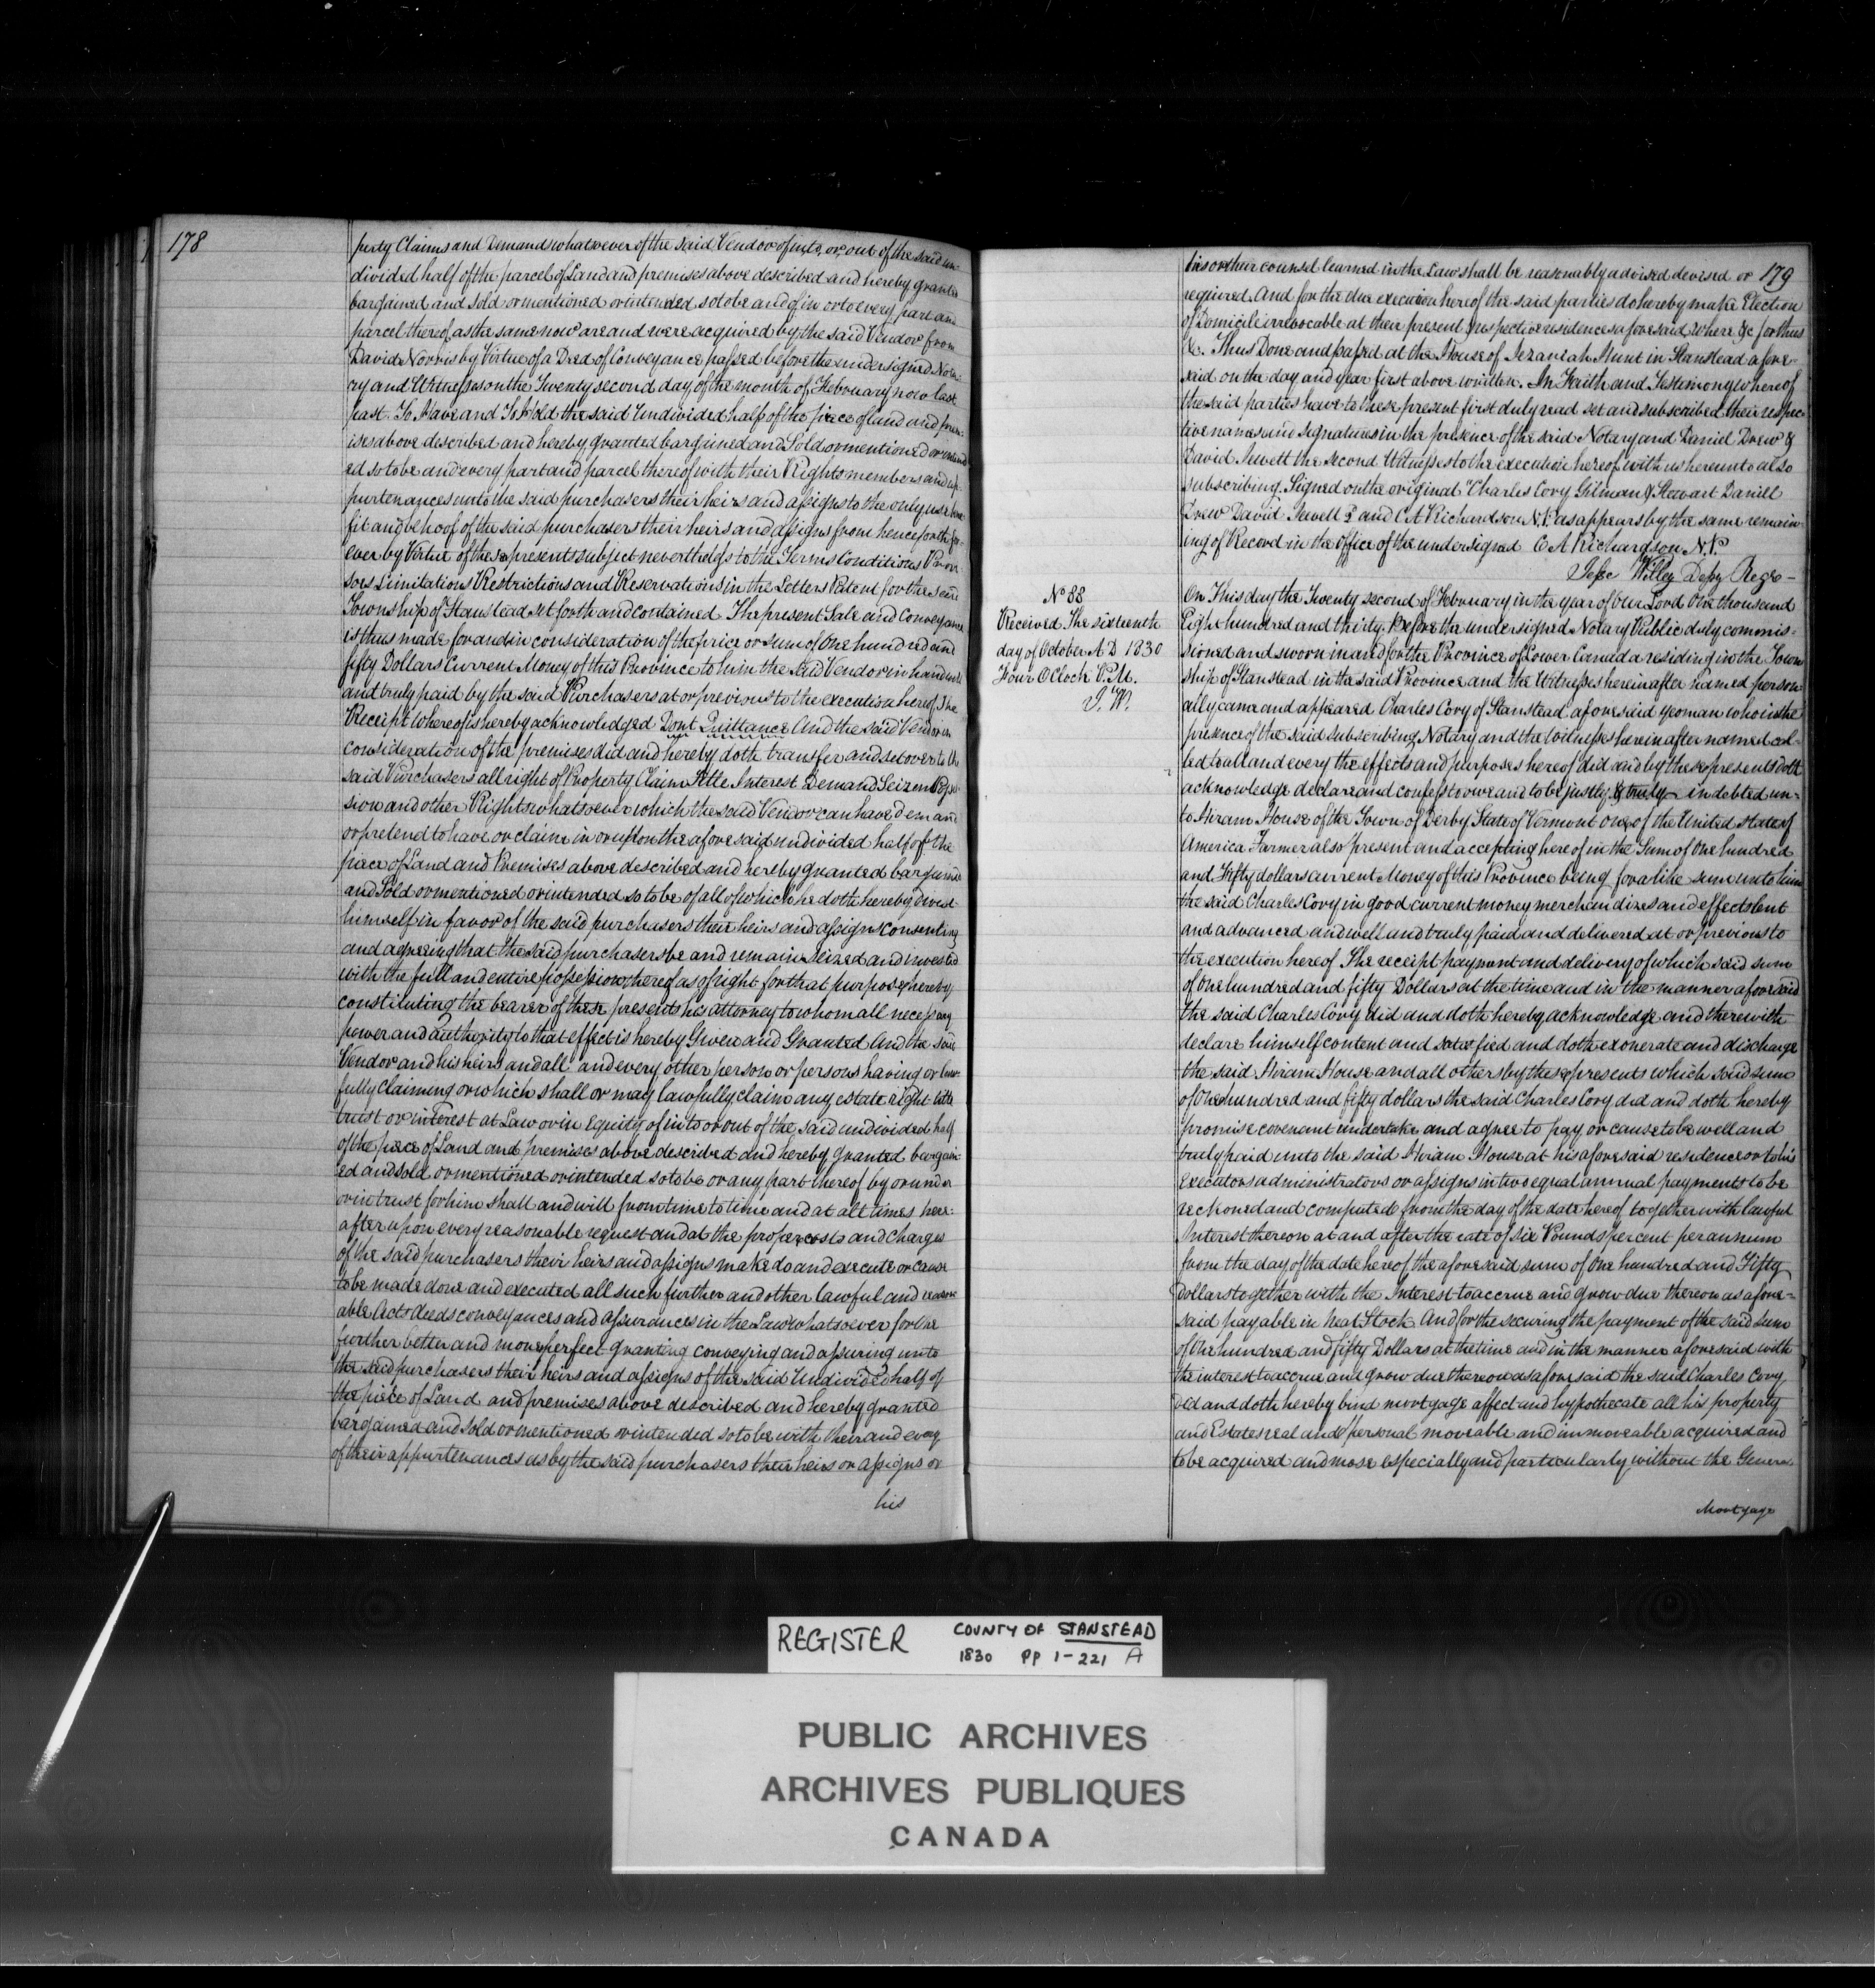 178
perty Claims and Demands whatsoever of the said Vendor of, into, or, out of the said un-
divided half of the parcel of Land and premises above described and hereby granted
bargained and sold or mentioned or intended so to be and of in or to every part and
parcel thereof as the same now are and were acquired by the said Vendor from
David Norris by Virtue of a Deed of Conveyance passed before the undersigned Nota-
ry and Witnesses on the Twenty second day of the month of February now last
past. To Have and To Hold the said Undivided half of the piece of land and prem-
ises above described and hereby granted bargained and Sold or mentioned or intend
ed so to be and every part and parcel thereof with their Rights members and ap-
purtenances unto the said purchasers their heirs and assigns to the only use bene
fit and behoof of the said purchasers their heirs and assigns from henceforth for-
ever by Virtue of these presents subject nevertheless to the Terms Conditions Provi
soes Limitations Restrictions and Reservations in the Letters Patent for the said
Township of Stanstead set forth and contained. The present Sale and Conveyance
is thus made for and in consideration of the price or sum of One hundred and
fifty Dollars Current Money of this Province to him the said Vendor in hand well
and truly paid by the said Purchasers at or previous to the execution hereof The
Receipt whereof is hereby acknowledged Dont Quittance And the said Vendor in
consideration of the premises did and hereby doth transfer and set over to the
said Purchasers all right of Property Claim Title Interest Demand Seizen Posses
sion and other Rights whatsoever which the said Vendor can have demand
or pretend to have or claim in or upon the aforesaid undivided half of the
piece of Land and Premises above described and hereby granted bargained
and Sold or mentioned or intended so to be of all of which he doth hereby divest
himself in favor of the said purchasers their heirs and assigns consenting
and agreeing that the said purchasers be and remain seized and invested
with the full and entire possession thereof as of right for that purpose hereby
constituting the bearer of these presents his attorney to whom all necessary
power and authority to that effect is hereby Given and Granted And the said
Vendor and his heirs and all and every other person or persons having or law-
fully claiming or which shall or may lawfully claim any estate right title
trust or interest at Law or in Equity of into or out of the said undivided half
of the piece of Land and premises above described and hereby granted bargain-
ed and sold or mentioned or intended so to be or any part thereof by or under
or in trust for him shall and will from time to time and at all times here-
after upon every reasonable request and at the proper costs and charges
of the said purchasers their heirs and assigns make do and execute or cause
to be made done and executed all such further and other lawful and reason
able Acts deeds conveyances and assurances in the Law whatsoever for the
further better and more perfect granting conveying and assuring unto
the said purchasers their heirs and assigns of the said Undivided half of
the piece of Land and premises above described and hereby granted
bargained and sold or mentioned or intended so to be with their and every
of their appurtenances as by the said purchasers their heirs or assigns or
his
179
his or their counsel learned in the Law shall be reasonably advised devised or
required. And for the due execution hereof the said parties do hereby make Election
of Domicile irrevocable at their present respective residences aforesaid where &c for thus
&c. Thus Done and passed at the House of Jezaniah Hunt in Stanstead afore-
said on the day and year first above written. In Faith and Testimony whereof
the said parties have to these present first duly read set and subscribed their respec-
tive names and signatures in the presence of the said Notary and Daniel Drew &
David Jewett the second Witnesses to the execution hereof with us hereunto also
subscribing. Signed on the original "Charles Cory Gilman & Stewart Daniell
Drew David Jewell & and C A Richardson N.P. as appears by the same remain-
ing of Record in the office of the undersigned C A Richardson N.P.
Jesse Willey Depy Regr -
No 88
Received The sixteenth
day of October A D 1830
Four OClock P.M.
J. W.
On This day the Twenty second of February in the year of Our Lord One thousand
Eight hundred and thirty. Before the undersigned Notary Public duly commis-
sioned and sworn in and for the Province of Lower Canada residing in the Town
ship of Stanstead in the said Province and the Witnesses hereinafter named person-
ally came and appeared Charles Cory of Stanstead aforesaid yeoman who in the
presence of the said subscribing Notary and the Witnesses hereinafter named cal-
led to all and every the effects and purposes hereof did and by these presents doth
acknowledge declare and confess to owe and to be justly & truly indebted un-
to Hiram House of the Town of Derby State of Vermont one of the United States of
America Farmer also present and accepting hereof in the Sum of One hundred
and Fifty dollars current Money of this Province being for a like sum unto him
the said Charles Cory in good current money merchandizes and effects lent
and advanced and well and truly paid and delivered at or previous to
the execution hereof The receipt payment and delivery of which said sum
of One hundred and fifty Dollars at the time and in the manner aforesaid
the said Charles Cory did and doth hereby acknowledge and therewith
declare himself content and satisfied and doth exonerate and discharge
the said Hiram House and all others by these presents which said sum
of One hundred and fifty dollars the said Charles Cory did and doth hereby
promise covenant undertake and agree to pay or cause to be well and
truly paid unto the said Hiram House at his aforesaid residence or to his
executors administrators or assigns in two equal annual payments to be
reckoned and computed from the day of the date hereof together with lawful
Interest thereon at and after the rate of six Pounds per cent per annum
from the day of the date hereof the aforesaid sum of One hundred and Fifty
Dollars together with the Interest to accrue and grow due thereon as afore-
said payable in Neat Stock And for the securing the payment of the said sum
of One hundred and fifty Dollars at the time and in the manner aforesaid with
the interest to accrue and grow due thereon as aforesaid the said Charles Cory
did and doth hereby bind mortgage affect and hypothecate all his property
and Estates real and personal moveable and immoveable acquired and
to be acquired and more especially and particularly without the General
Mortgage
REGISTER COUNTY OF STANSTEAD
1830 PP 1-221 A
PUBLIC ARCHIVES
ARCHIVES PUBLIQUES
CANADA